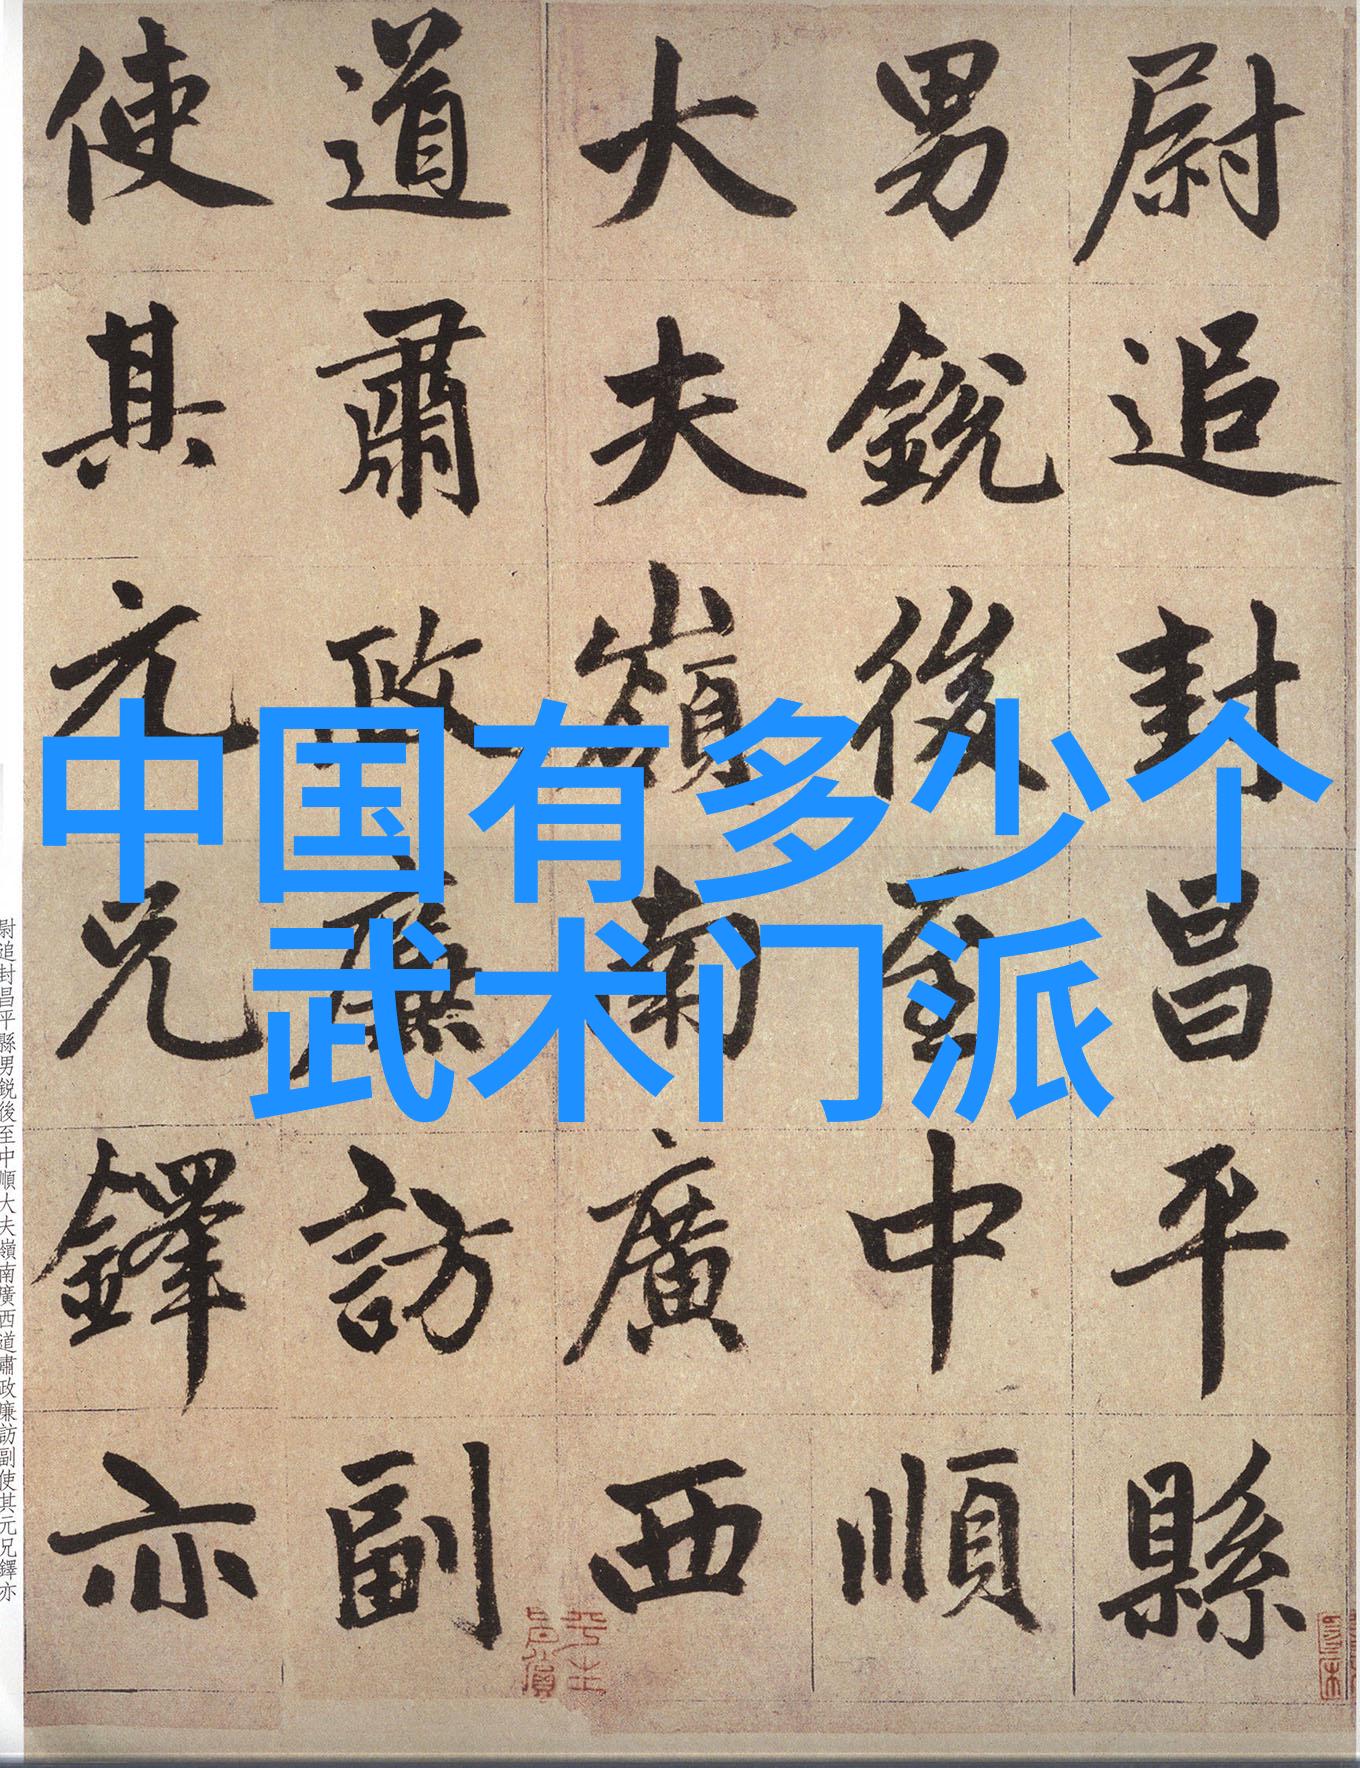 尉追封昌平縣
男銳後至中順
大夫嶺南廣西
道肅政廉訪副
使其元兄鐸亦
中国有多少个
武术门派
尉追封昌平縣男銳後至中順大夫嶺南廣西道肅政廉訪副使其元兄鐸亦